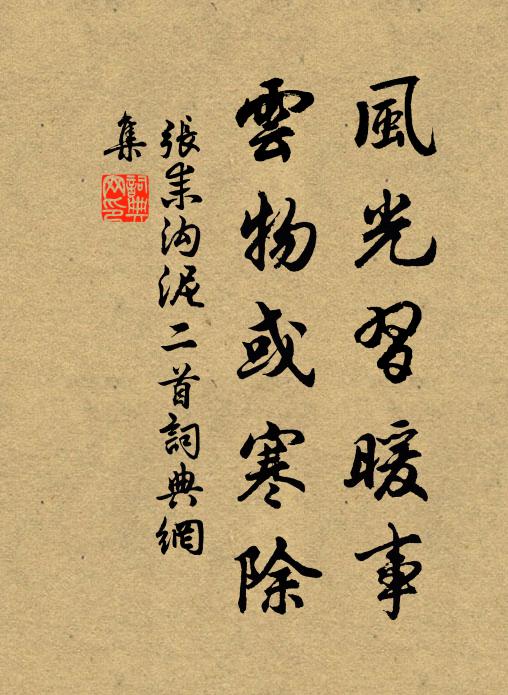 風光習暖事
雲物或寒除
張耒溝泥二首詞典網
集
詞典
网印